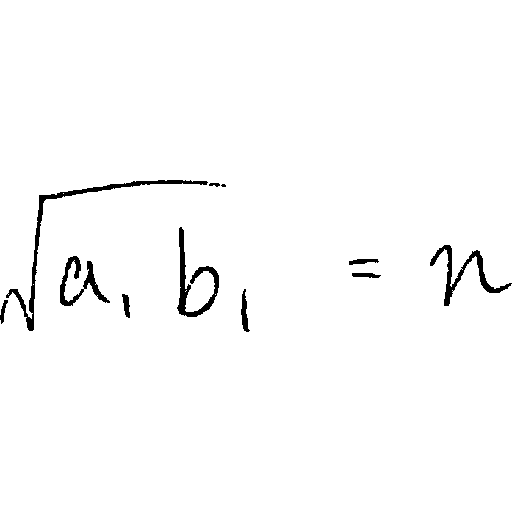 √(a₁ b₁) = n